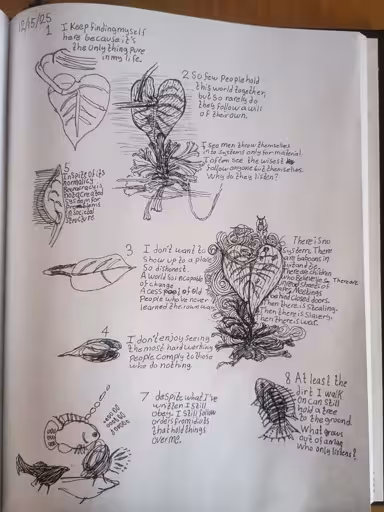 12/15/25
1 I keep finding myself
here because it's
the only thing pure
in my life.
2 So few people hold
this world together,
but so rarely do
they follow a will
of their own.
I see men throw themselves
into systems only for material.
I often see the wisest
follow anyone but themselves.
Why do they listen?
5
In spite of its
normality
Bureaucracy is
not a created
system for
in societal
structure
3 I don't want to
show up to a place
so dishonest.
A world so incapable
of change.
A cesspool of old
people who've never
learned the
4
I don't enjoy seeing
the most hard working
people comply to those
who do nothing.
There is no
system. There
are baboons in
suit and tie.
There are children
who believe
There are
meetings
behind closed doors.
Then there is stealing.
Then there is slavery.
Then there is war.
7 despite what I've
written I still
obey. I still follow
orders from idiots
that hold things
over me.
8 At least the
dirt I walk
on can still
hold a tree
to the ground.
What grows
out of a man
who only listens?